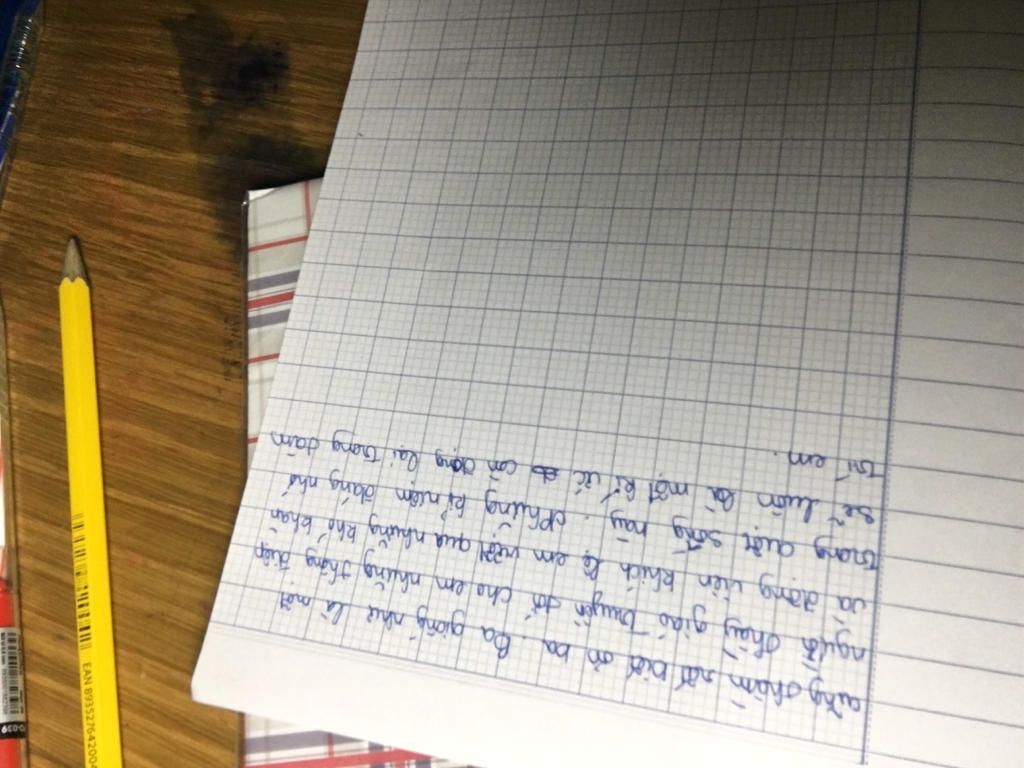 cũng thầm nói biết ơn ba. Ba giống như là một
người thầy giáo truyền đổ cho em những thông điệp
và động viên khích lệ em vượt qua những khó khăn
trong cuộc sống này. Những kỉ niệm đáng nhớ
sẽ luôn là một kí ức còn đọng lại trong tâm
trí em.
EAN 893527642004
0-039